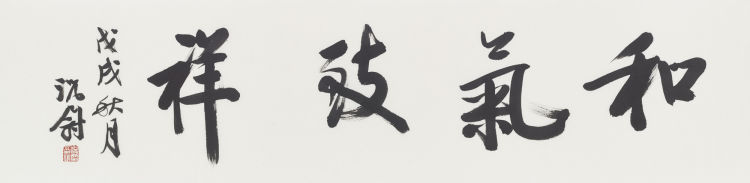 和氣致祥
戊戌秋月
沈尉